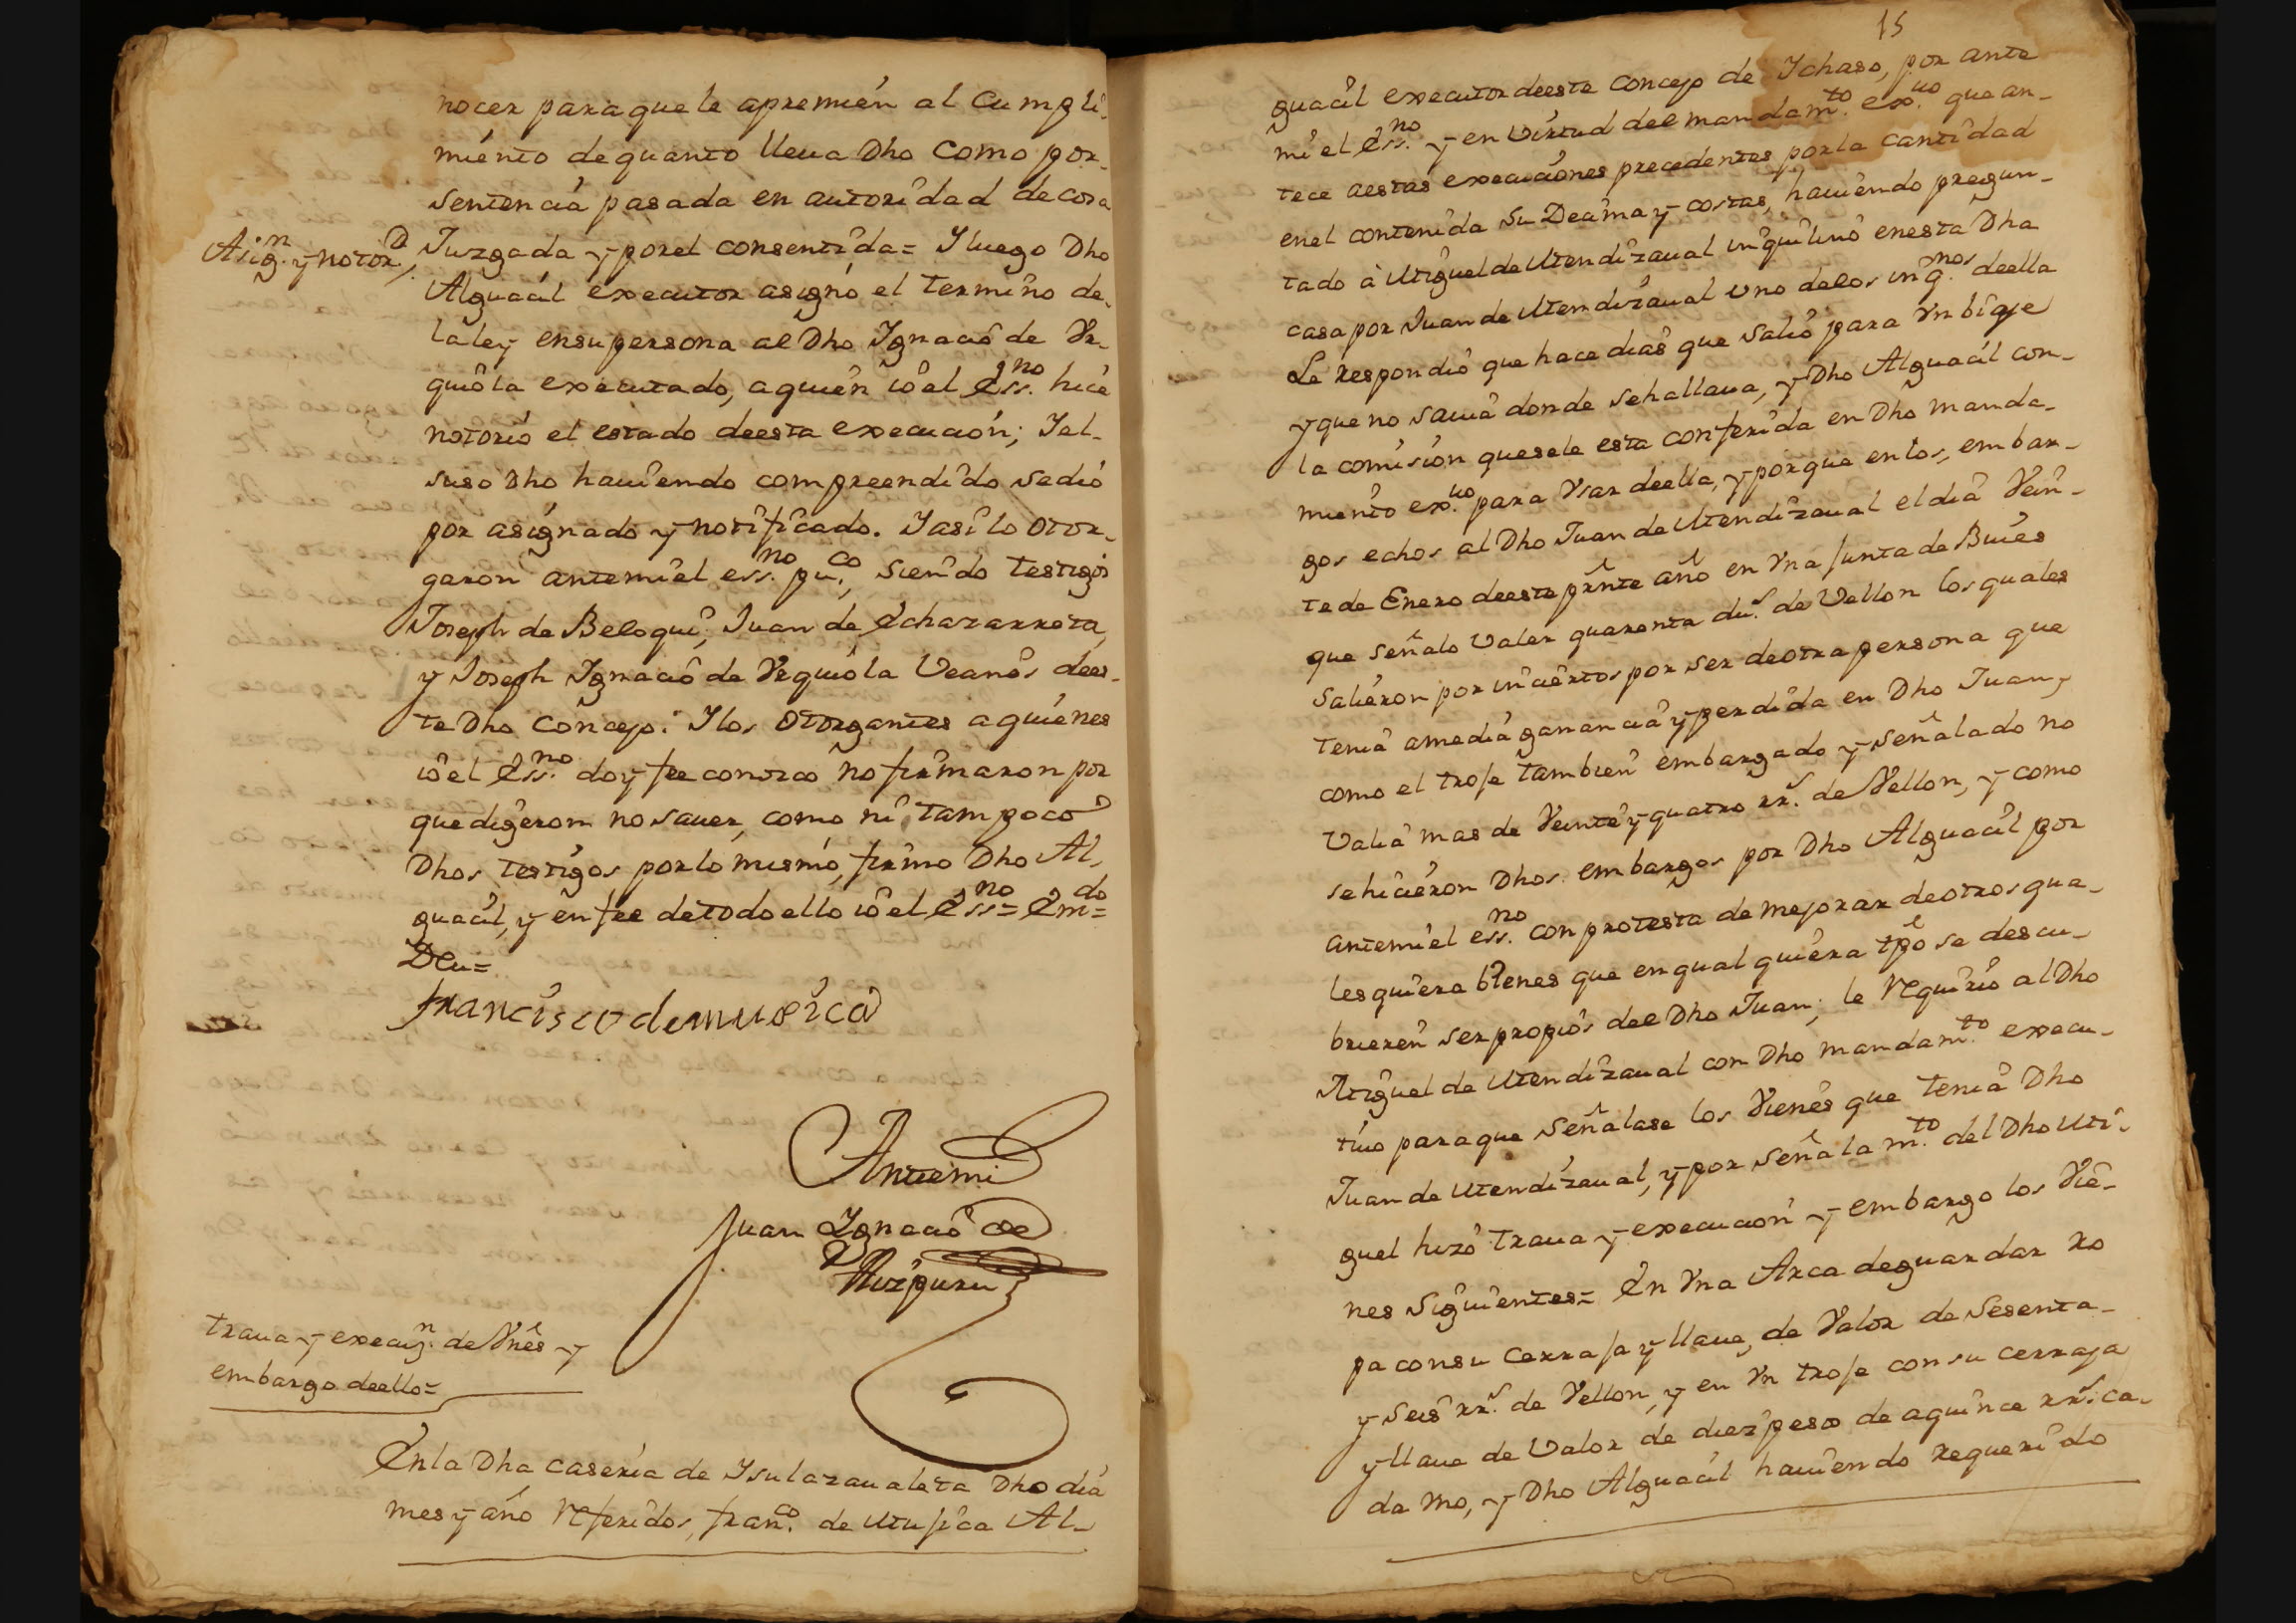 nocer paraque le apremien al Cumpli-
miento dequanto lleua Dho como por
Sentencia pasada en autoridad de cosa
Asign. y notor.d
Juzgada y porel consentida= I luego Dho
Alguacil executor asignó el termino de
la ley ensupersona al Dho Ignacio de Vr-
quiola executado, aquien io el Ess.no hice
notorio el estado deesta execucion; I el
suso Dho hauiendo compreendido sedió
por asignado y notificado. I asi lo otor-
garon antemi el ess.no pu.co, siendo testigos
Joseph de Beloqui, Juan de Echazarreta,
y Joseph Ignacio de Vrquiola Veanos dees-
te Dho Concejo: I los otorgantes aquienes
io el Ess.no doy fee conozco no firmaron por
quedigeron no sauer, como ni tampoco
Dhos testigos porlo mismo, firmo Dho Al-
guacil, y en fee detodo ello io el Ess.no= Em.do=
Deu=
francisco de muxica
Antemi
Juan Ignacio de
Aizpuru
traua y execuz.n de Vnes y
embargo deello=
En la Dha caseria de Isulazaualeta Dho dia
mes y año referidos, fran.co de Mujica Al-
15
guacil executor deeste Concejo de Ichaso, por ante
mi el Ess.no y en virtud del mandam.to ex.uo que an-
tece aestas execuciones precedentes porla cantidad
enel contenida su Decima y costas, hauiendo pregun-
tado à Miguel de Mendizaual inquilino enesta Dha
casa por Juan de Mendizaual uno delos inq.nos deella
Le respondió que hace dias que salió para Vn biaje
y que no sauia donde sehallaua, y Dho Alguacil con-
la comision quesele esta conferida en Dho manda-
miento ex.uo para Vsar deella, y porque en los, embar-
gos echos al Dho Juan de Mendizaual el dia Vein-
te de Enero deeste prnte año en Vna Junta de Buies
que señalo Valer quarenta du.s de Vellon los quales
salieron por inciertos por ser deotra persona que
tenia amedia ganancia y perdida en Dho Juan, y
como el troje tambien embargado y señalado no
Valia mas de Veinte y quatro rr.s de Vellon, y como
sehicieron Dhos embargos por Dho Alguacil por
antemi el ess.no con protesta de mejorar deotros qua-
lesquiera bienes que enqual quiera tpo se descu-
brieren ser propios del Dho Juan; le requirio al Dho
Miguel de Mendizaual con Dho mandam.to execu-
tiuo paraque señalase los Vienes que tenia Dho
Juan de Mendizaual, y por señalam.to del Dho Mi-
guel hizo traua y execucion y embargo los Vie-
nes siguientes= En Vna Arca deguardar ro
pa consu cerraja y llaue, de Valor de Sesenta
y seis rr.s de Vellon, y en Vn troje con su cerraja
y llaue de Valor de diez pesos de aquince rr.s ca-
da vno, y Dho Alguacil hauiendo requerido